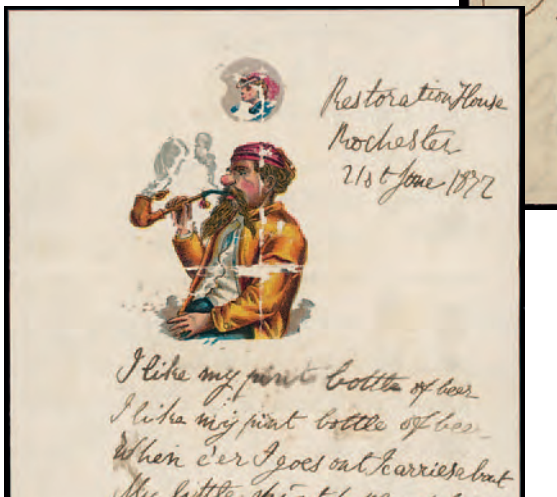 Restoration House
Rochester
21st June 1872
I like my pint bottle of beer
I like my pint bottle of beer
When e'er I goes out I carries about
My little pint